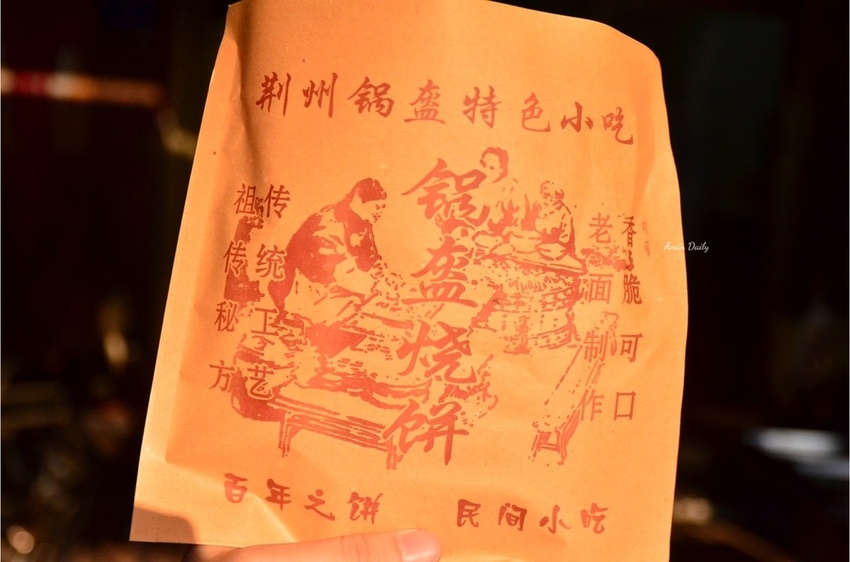 荆州锅盔特色小吃
锅盔烧饼
祖传秘方
传统工艺
老面制作
香脆可口
百年之饼 民间小吃
Anan Daily